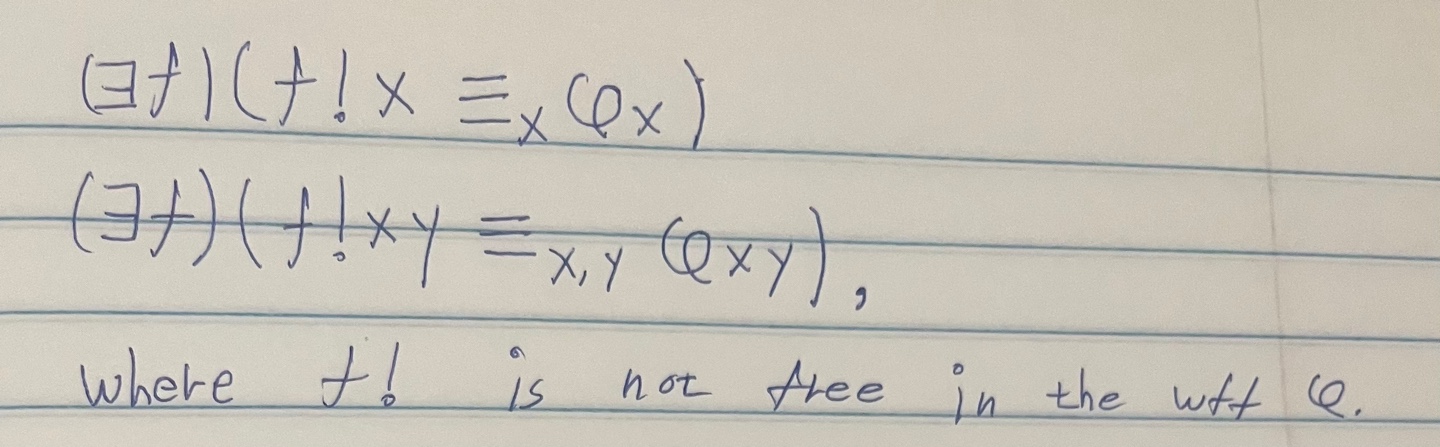 (∃f)(f!x ≡ₓ φx)
(∃f)(f!xy ≡ₓ,ᵧ φxy),
where f! is not free in the wff φ.